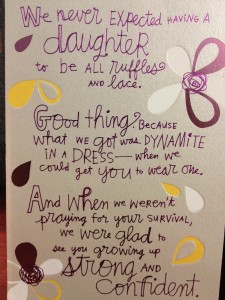 We never expected having a
daughter
to be all ruffles
and lace.
Good thing. Because
what we got was DYNAMITE
IN A DRESS — when we
could get you to wear one.
And when we weren't
praying for your survival,
we were glad to
see you growing up
strong and
confident.